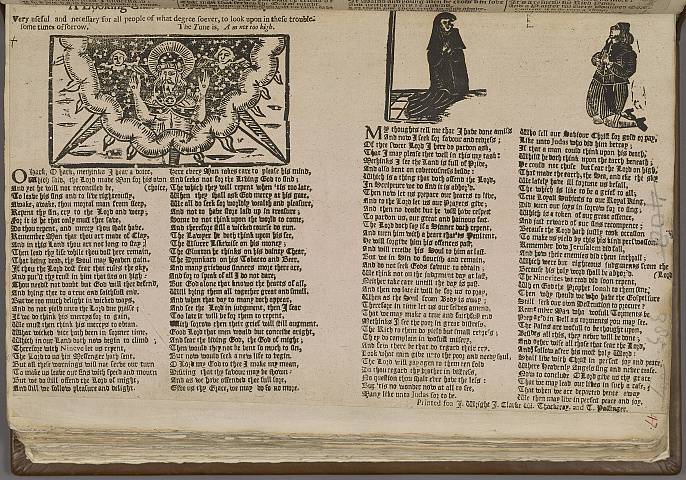 A Looking
Very useful and necessary for all people of what degree soever, to look upon in these trouble-
some times of sorrow. The Tune is, A m not too high.
O Hark, O hark, methinks I hear a voice,
Which said, the Lord made Man for his own
And yet he will not reconciled be, (choice,
To leave his sins and to live righteously,
Awake, awake, thou mortal man from sleep,
Repent thy sin, cry to the Lord and weep;
For it is he that only must thee save,
Do thou repent, and mercy thou shalt have.
Remember Man that thou art made of Clay,
And in this Land thou art not long to stay;
Then lead thy life while thou dost here remain,
That being dead, thy Soul may Heaven gain.
If thou the Lord dost fear that rules the sky,
And put'st thy trust in him that sits on high:
Thou needst not doubt but God will thee defend,
And bring thee to a true and faithful end.
But we too much delight in wicked ways,
And do not yield unto the Lord due praise;
If we do then think his mercies to gain,
We must then think his mercys to obtain.
What wicked vice hath been in former time,
Which in our Land doth now begin to climb
Therefore with Nineve let us repent,
The Lord to us his Messenger hath sent,
But all these warnings will not serve our turn
To make us leave our sins with speed and mourn
But we do still offend the Lord of might,
And still we follow pleasure and delight.
Here every Man takes care to please his mind,
And seeks not for the Living God to find;
The which they will repent when 'tis too late,
When they shall ask God mercy at his gate,
We do so seek for worldly wealth and pleasure,
And not to have store laid up in treasure;
Some do not think upon the world to come,
And therefore still a wicked course do run.
The Lawyer he doth think upon his fee,
The Usurer likewise on his money;
The Glutton he thinks on his dainty Chear,
The Drunkard on his Tobacco and Beer.
And many grievous sinners more there are,
And for to speak of all I do not dare,
But God alone that knows the hearts of all,
Will bring them all together great and small.
And when that day so many doth appear,
And see the Lord in judgment, then I fear
Too late it will be for them to repent,
With sorrow then their grief will still augment.
Good Lord that men would but consider aright,
And fear the living God, the God of might;
Then would they not be bent so much to sin,
But now would seek a new life to begin.
O Lord my God to thee I make my moan,
Desiring that thy favour may be shown:
And as we have offended thee full sore,
Give us thy Grace, we may do so no more.
MY thoughts tell me that I have done amiss
And now I seek for favour and redress;
Of thee sweet Lord I here do pardon ask,
That I may please thee well in this my task:
Methinks I see the Land is full of Pride,
And also bent on covetousness beside:
Which is a thing that doth offend the Lord,
In Scripture we do find it is abhor'd.
Then now let us prepare our hearts to live,
And to the Lord let us our Prayers give;
And then no doubt but he will have respect
To pardon us, our great and hainous fact.
The Lord doth say if a Sinner doth repent,
And turn him with a heart that's Penitent,
He will forgive him his offences past,
And will receive his Soul for him at last.
But we in Sin do flourish and remain,
And do not seek Gods favour to obtain;
We think not on the judgment day at last,
Neither take care until the day be past
And then too late it will be for us to pray,
When as the Soul from Body is away;
Therefore in time let us our selves amend,
That we may make a true and faithful end
Methinks I see the poor in great distress,
The Rich to them do possess but small express;
They do complain in woful misery,
And few there be that do regard their cry,
Look what men give unto the poor and needy soul,
The Lord will pay again to them ten fold
Do thou regard thy brother in distress,
No question thou shalt ever have the less:
But 'tis no wonder now at all to see,
Many like unto Judas for to be.
Who sell our Saviour Christ for gold or pay,
Like unto Judas who did him betray;
If that a man could think upon his death,
Whilst he doth think upon the earth beneath;
He could not chuse but fear the Lord on high,
That made the earth, the Sea, and eke the sky
Late lately have ill fortune us befall,
The which is like to be a grief to all;
True Loyal Subjects to our Royal King,
And turn our joys in sorrow for to sing;
Which is a token of our great offence,
And just reward of our sins recompence;
Because the Lord hath justly took occasion
To make us yield by this his kind perswasion.
Remember how Jerusalem did fall,
And how their enemies did them inthrall;
Which were but righteous judgments from the
Because his holy word they did abhor; (Lord
The Ninevites we read did soon repent,
When God the Prophet Jonah to them sent;
Then why should we who have the Gospel sure
Still seek our own Destruction to procure:
Remember Man who woful Torments be
Prepar'd in Hell as Judgments you may see.
The Pains are woful to be thought upon,
Besides all this, they never will be done;
And others wise all those that fear the Lord,
And follow after his most holy Word:
Shall live with Christ in perfect joy and peace,
Where Heavenly Angels sing and never cease.
Now to conclude O Lord give us thy grace,
That we may lead our lives in such a case;
That when we are departed hence away
We then may live in perfect peace and joy.
Printed for J. Wright J. Clarke W. Thackeray, and T. Passinger.
47